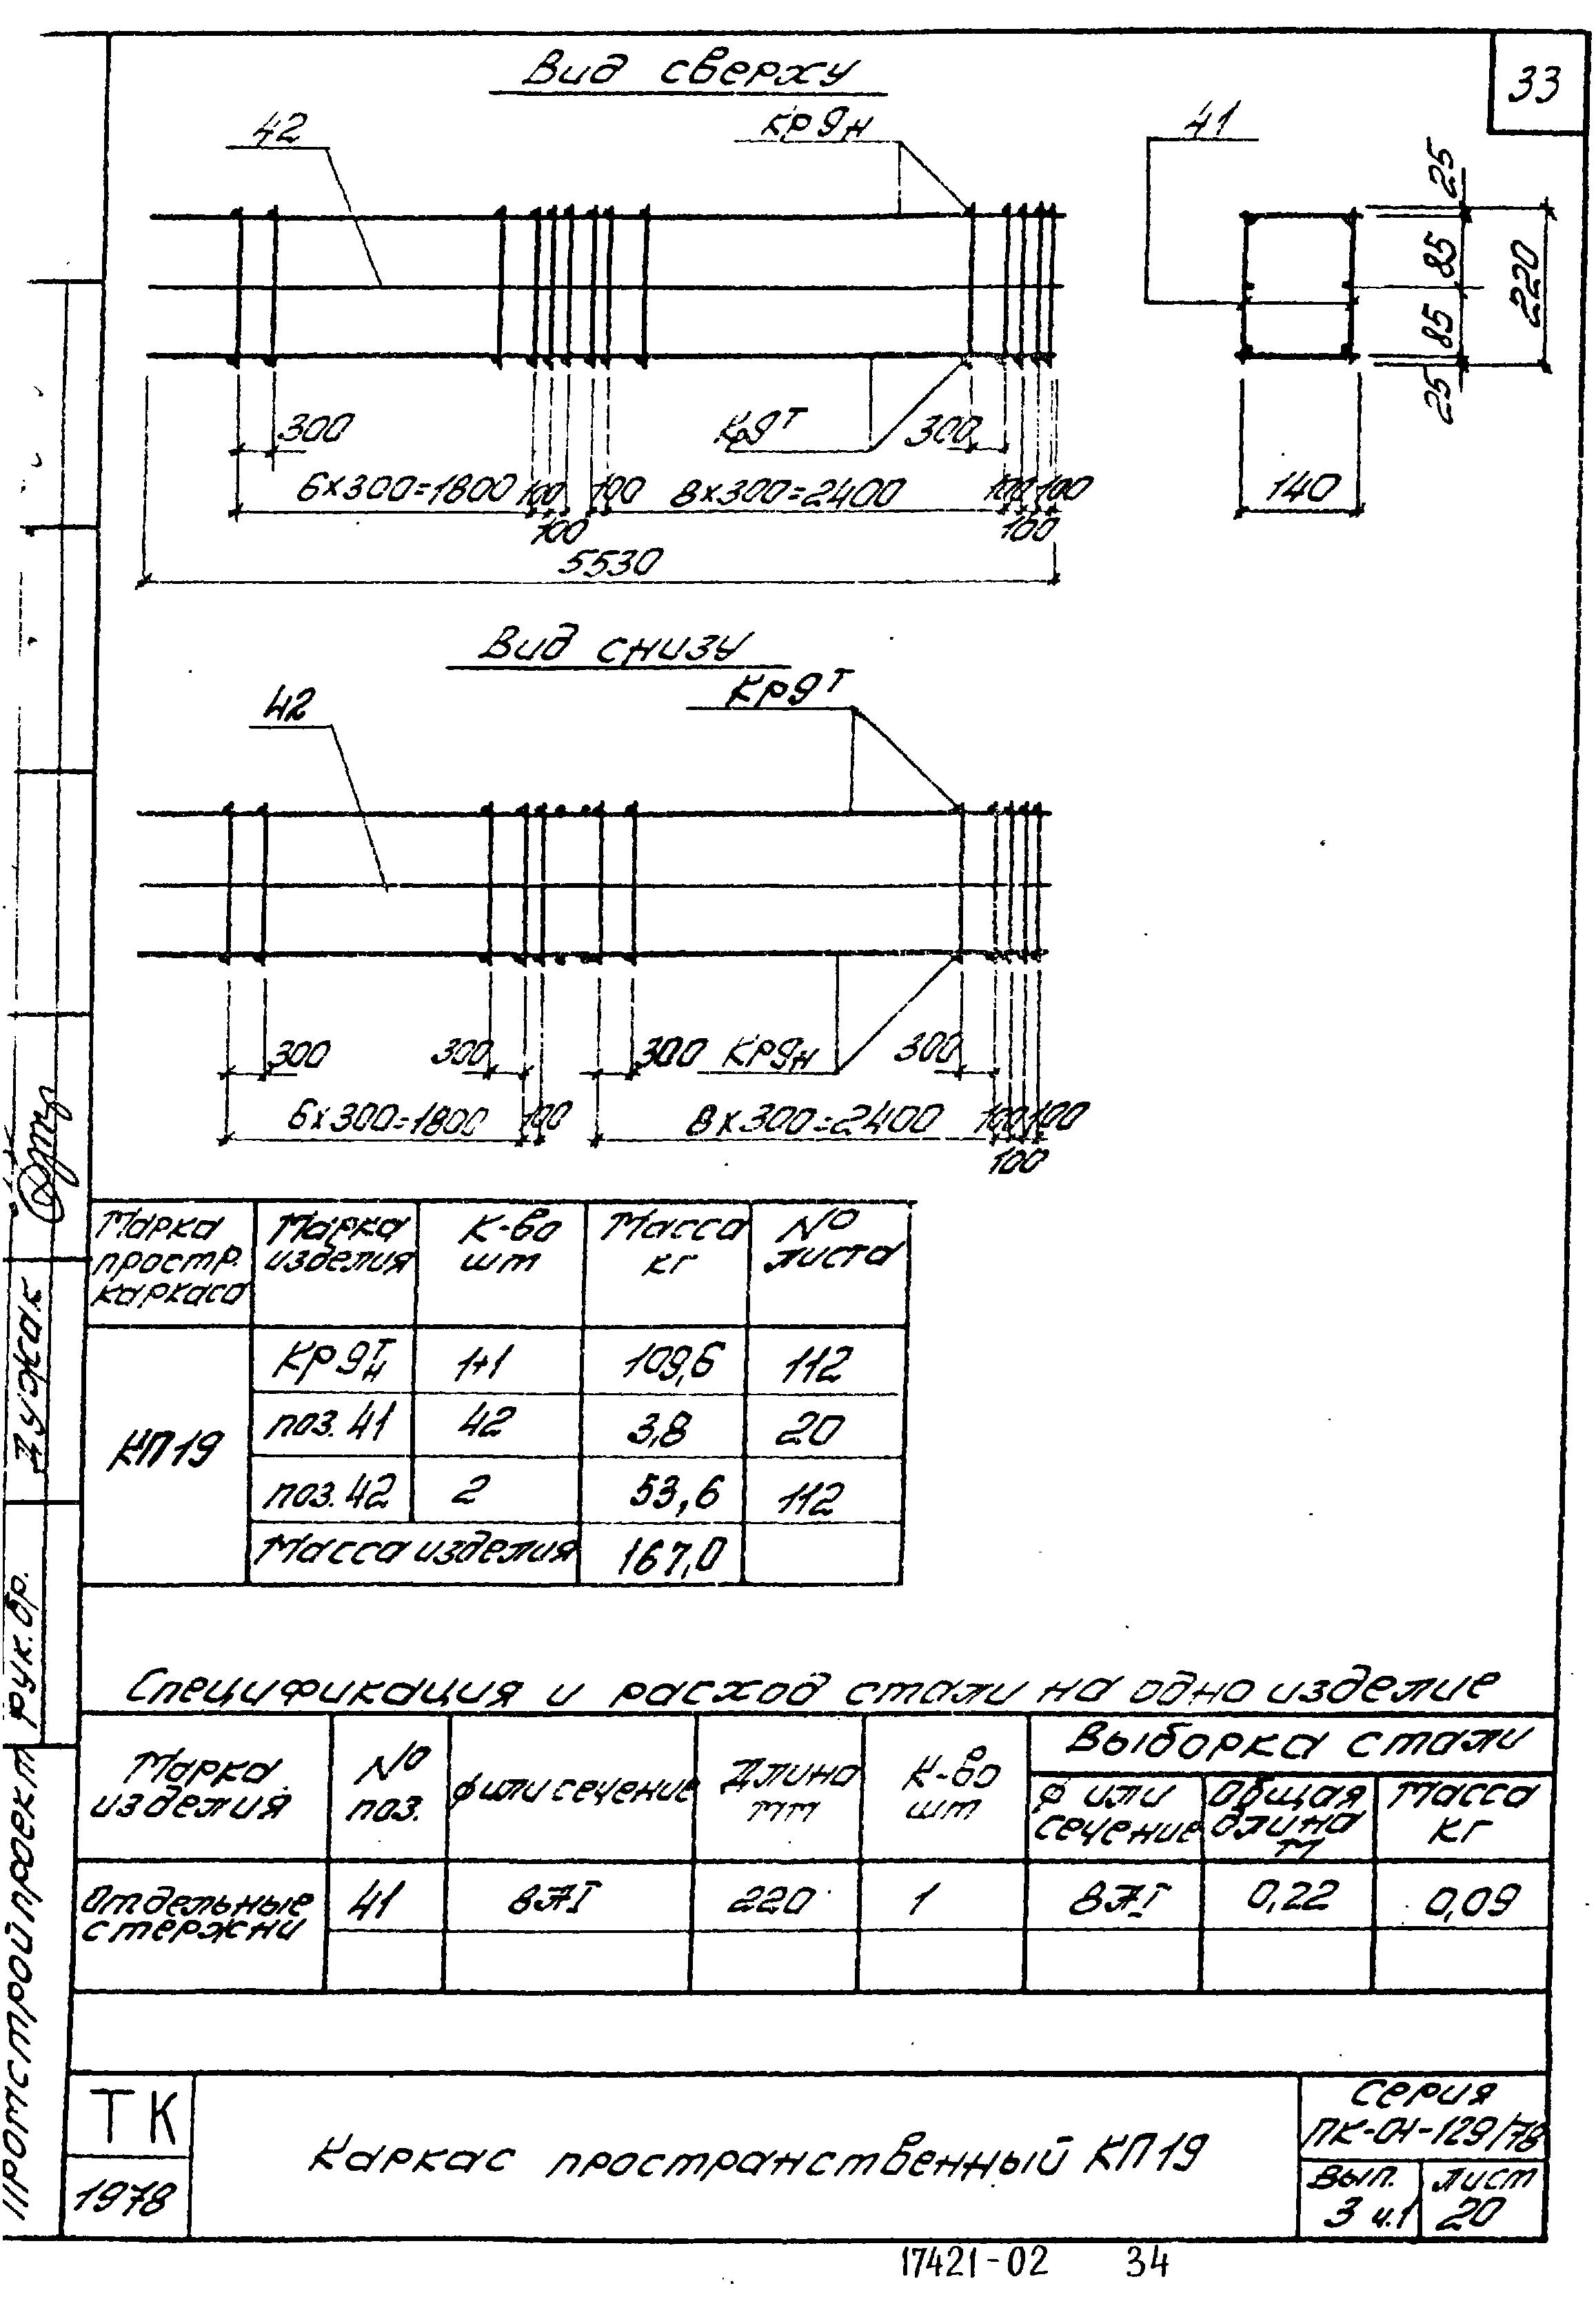 33
Вид сверху
42
КР9н
41
25
85
85
25
220
140
300
Кр9т
300
6х300=1800
100
100
100
8х300=2400
100
100
100
5530
Вид снизу
42
КР9т
300
300
300
КР9н
300
6х300=1800
100
8х300=2400
100
100
100
Марка простр. каркаса
Марка изделия
К-во шт
Масса кг
№ листа
КП19
КР9тн 1+1 109,6 112
поз.41 42 3,8 20
поз.42 2 53,6 112
Масса изделия 167,0
Спецификация и расход стали на одно изделие
Марка изделия
№ поз.
ф или сечение
Длина мм
К-во шт
Выборка стали
ф или сечение
Общая длина м
Масса кг
Отдельные стержни
41 8АI 220 1 8АI 0,22 0,09
ТК
1978
Каркас пространственный КП19
Серия
ПК-01-129/78
Вып.
3 ч.1
Лист
20
17421-02 34
Промстройпроект
Рук.бр.
Дужак